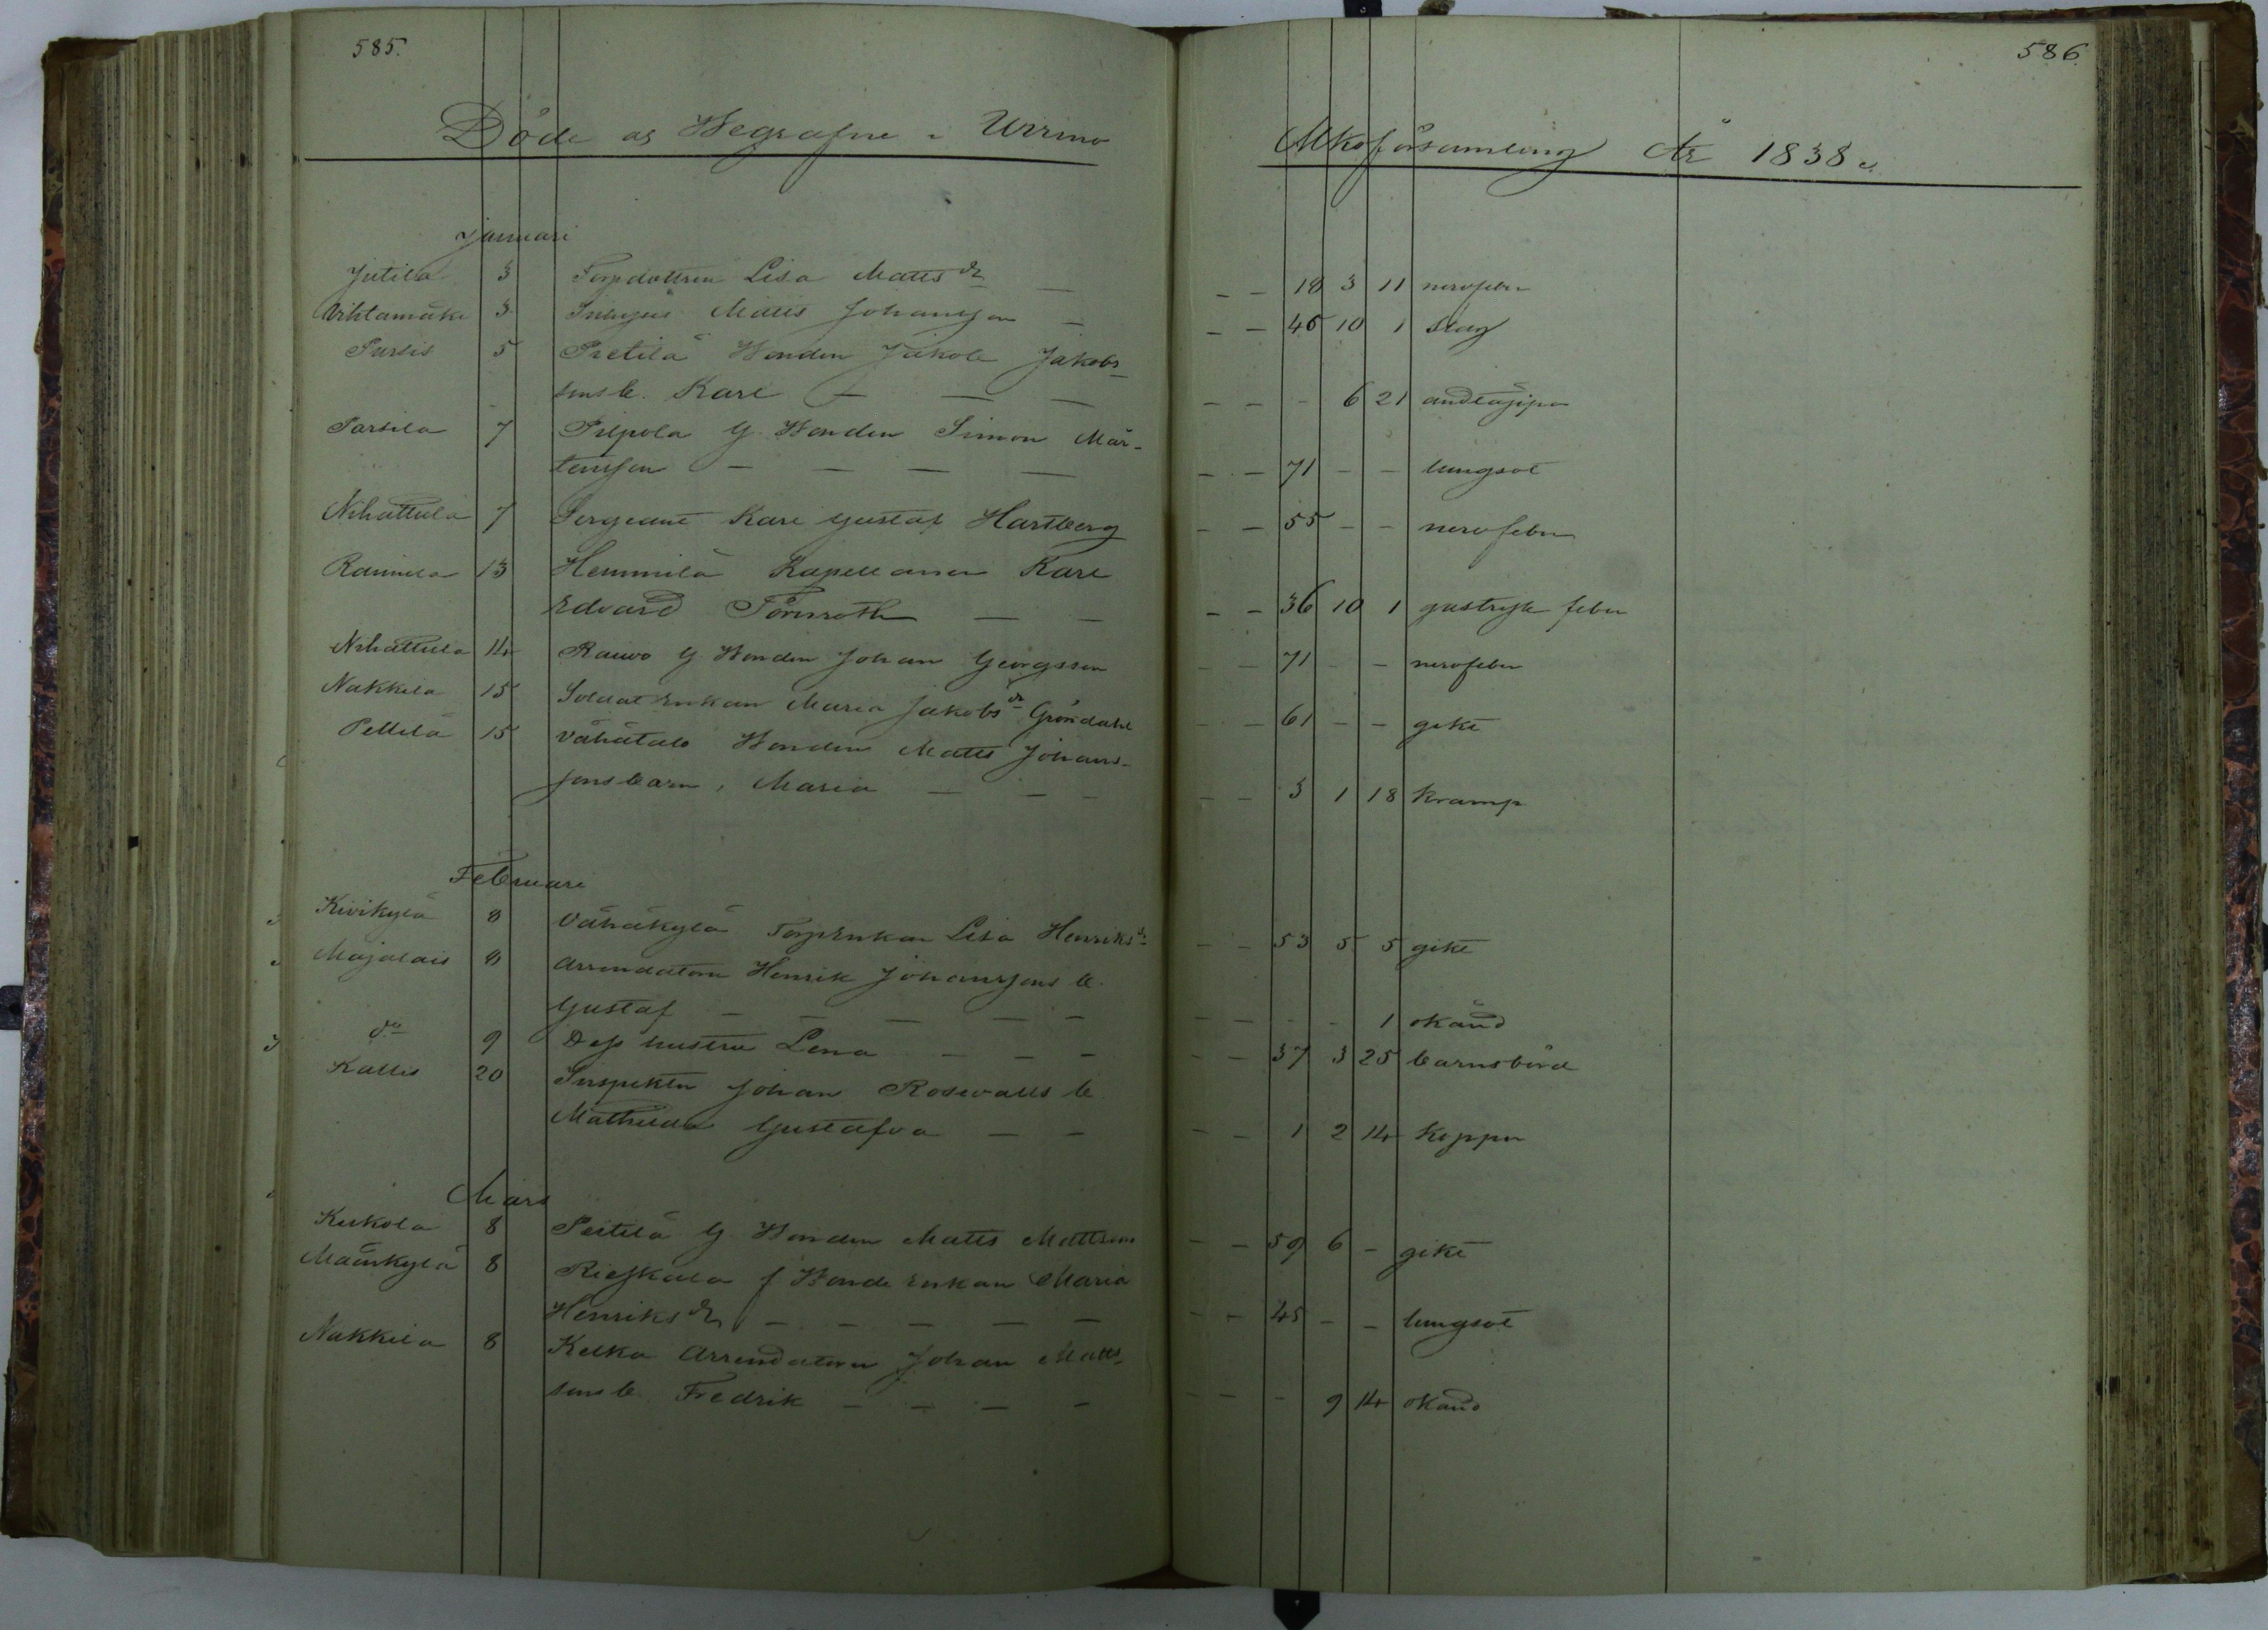 585.
586
Döde og Begrafne i Urrino
Mkoförsamling År 1838
Januari
Jutila 3 Torpdottren Lisa Matts dr — — — 18 3 11 nervfeber
Vihtamäki 3 Inhyses Matts Johansson — — — 45 10 1 slag
Pursis 5 Pietilä Bonden Jakob Jakobs-
sons b. Karl — — — — — - 6 21 andtäppa
Parsila 7 Pilpola G Bonden Simon Mår-
tensson — — — — — — 71 — — lungsot
Nihattula 7 Sergeant Karl Gustaf Hartberg — — 55 — — nervfeber
Raumela 13 Hemmilä Kapellanen Karl
Edvard Törnroth — — — — 36 10 1 gastrisk feber
Nihattula 14 Raiwo G Bonden Johan Georgsson — — 71 — — nervfeber
Nakkila 15 Soldat Enkan Maria Jakobs dr Gröndahl — — 61 — — gikt
Pellilä 15 Vähätalo Bonden Matts Johans-
sons barn, Maria — — — — — 3 1 18 kramp
Februari
Kivikylä 8 Vähäkylä TorpEnkan Lisa Henriks dr — — 53 5 5 gikt
Majalais 8 Arrendatorn Henrik Johanssons b.
Gustaf — — — — — — — - - 1 okänd
do 9 Dess hustru Lena — — — — — 37 3 25 barnsbörd
Kallis 20 Inspektor Johan Rosevalls b.
Mathilda Gustafva — — — — 1 2 14 koppor
Mars
Keskola 8 Pertilä G Bonden Matts Mattsson — — 59 6 — gikt
Maankylä 8 Rieskala f BondeEnkan Maria
Henriks dr — — — — — — — 45 — — lungsot
Nakkila 8 Kelka Arrendatorn Johan Matts-
sons b. Fredrik — — — — — — - 9 14 okänd